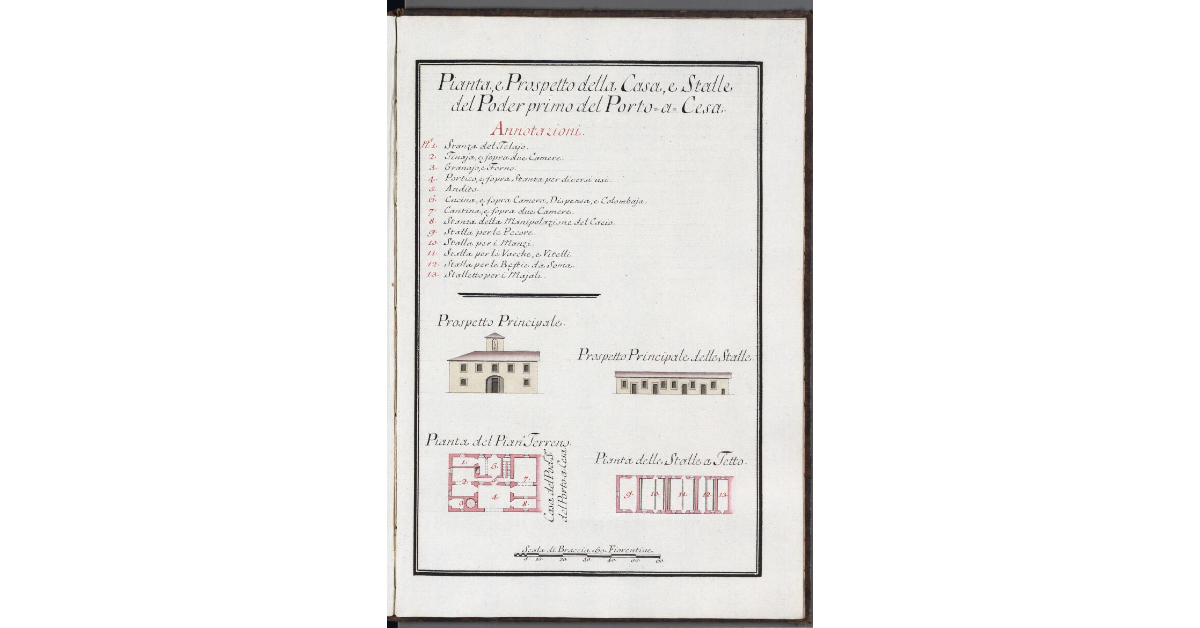 Pianta, e Prospetto della Casa, e Stalle
del Poder primo del Porto=a=Cesa.
Annotazioni.
N.º 1. Stanza del Telajo.
2. Tinaja, e sopra due Camere.
3. Granajo, e Forno.
4. Portico, e sopra Stanza per diversi usi.
5. Andito.
6. Cucina, e sopra Camera, Dispensa, e Colombaja.
7. Cantina, e sopra due Camere.
8. Stanza della Manipolazione del Cacio.
9. Stalla per le Pecore.
10. Stalla per i Manzi.
11. Stalla per le Vacche, e Vitelli.
12. Stalla per le Bestie da Soma.
13. Stalletto per i Majali.
Prospetto Principale.
Prospetto Principale delle Stalle.
Pianta del Pian Terreno.
Casa del Pod.
del Porto a Cesa
1. 2. 3. 4. 5. 6. 7. 8.
Pianta delle Stalle a Tetto.
9. 10. 11. 12. 13.
Scala di Braccia 60. Fiorentine.
5 10. 20. 30. 40. 50. 60.